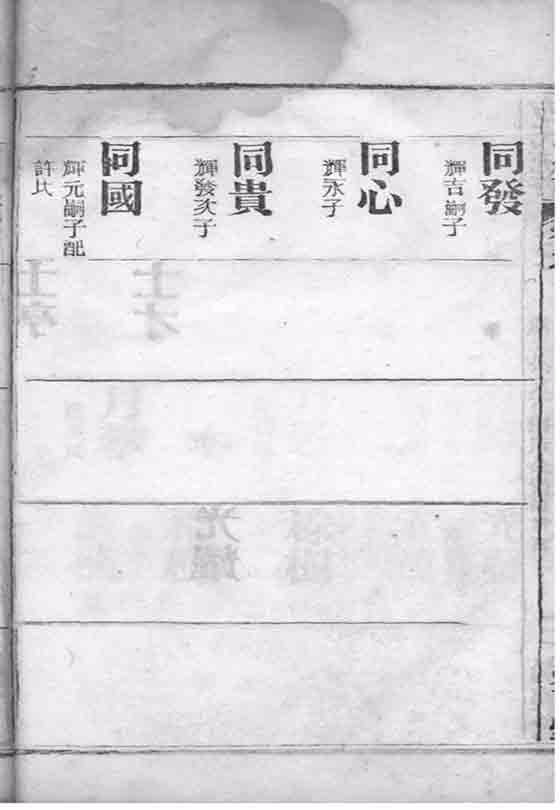 同發
輝吉嗣子
同心
輝永子
同貴
輝發次子
同國
輝元嗣子配
許氏